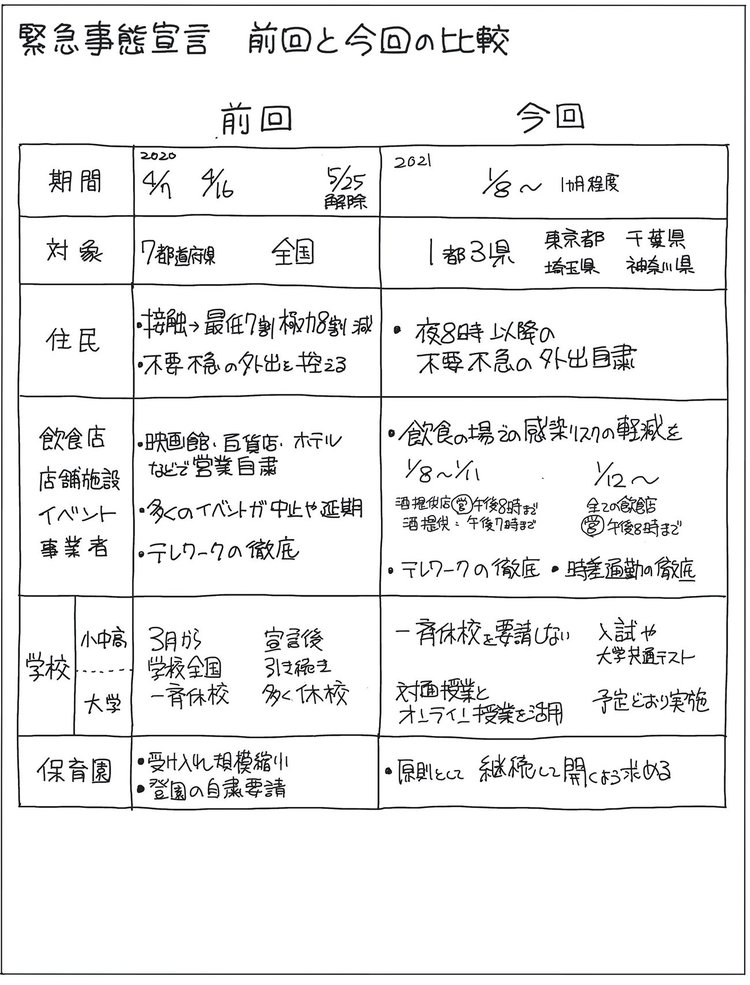 緊急事態宣言 前回と今回の比較
前回 今回
期間
2020
4/7 4/16 5/25
解除
2021
1/8〜 1カ月程度
対象
7都道府県 全国
1都3県
東京都 千葉県
埼玉県 神奈川県
住民
・接触→最低7割極力8割減
・不要不急の外出を控える
・夜8時以降の
不要不急の外出自粛
飲食店
店舗施設
イベント
事業者
・映画館、百貨店、ホテル
などで営業自粛
・多くのイベントが中止や延期
・テレワークの徹底
・飲食の場での感染リスクの軽減を
1/8〜1/11
酒提供店㊂午後8時まで
酒提供:午後7時まで
1/12〜
全ての飲食店
㊂午後8時まで
・テレワークの徹底 ・時差通勤の徹底
学校
小中高
大学
3月から
学校全国
一斉休校
宣言後
引き続き
多く休校
一斉休校を要請しない
入試や
大学共通テスト
対面授業と
オンライン授業を活用
予定どおり実施
保育園
・受け入れ規模縮小
・登園の自粛要請
・原則として 継続して開くよう求める